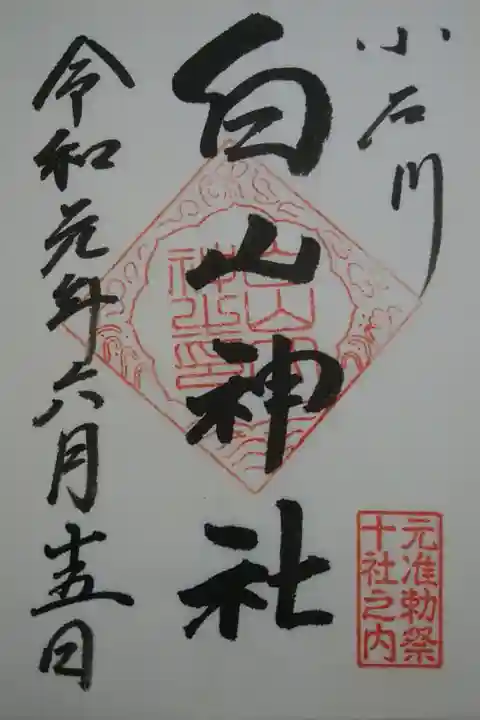 小石川
元准勅祭
十社之内
白山神社
令和元年六月十五日